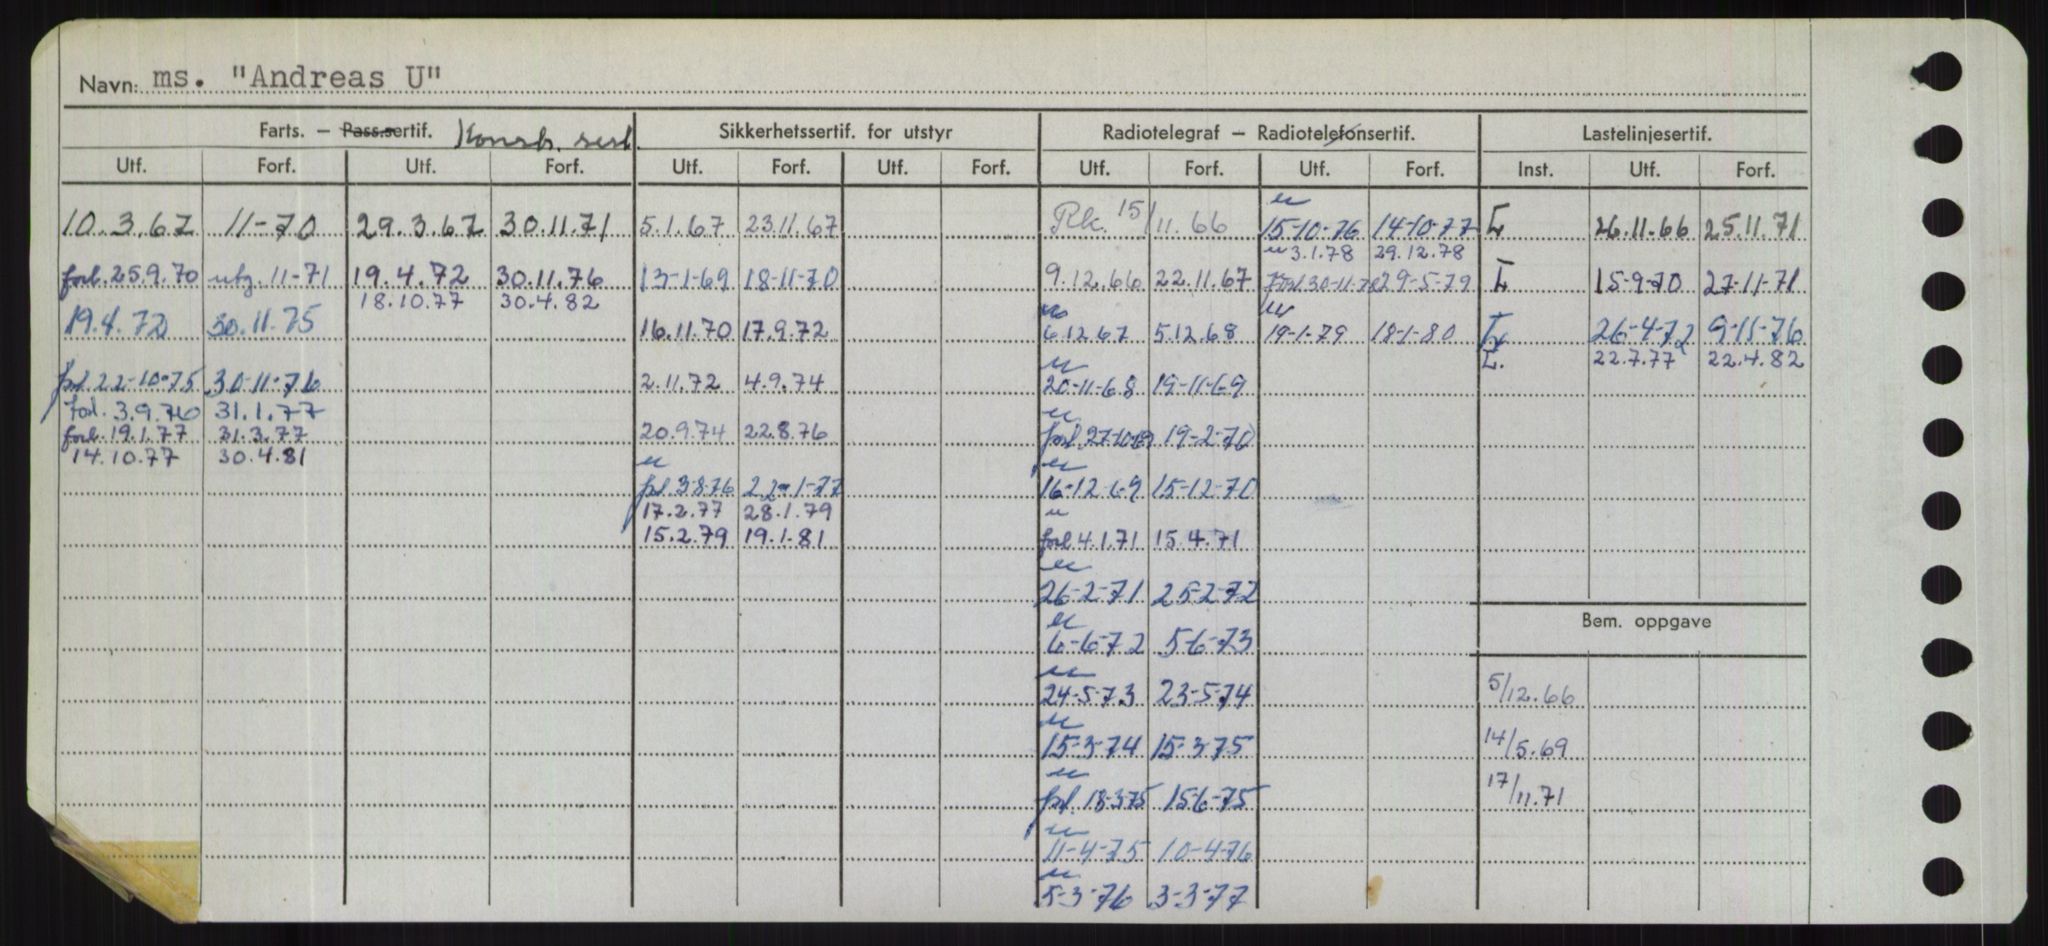 Navn: ms. "Andreas U"
Farts. — Pass.sertif. Konstr. sert. Sikkerhetssertif. for utstyr Radiotelegraf — Radiotelefonsertif. Lastelinjesertif.
Utf. Forf. Utf. Forf. Utf. Forf. Utf. Forf. Utf. Forf. Utf. Forf. Inst. Utf. Forf.
10.3.67 11-70 29.3.67 30.11.71 5.1.67 23.11.67 Rk. 15/11.66 15-10-76 14-10-77 L 26.11.66 25.11.71
3.1.78 29.12.78
forl. 25.9.70 utg. 11-71 19.4.72 30.11.76 13-1-69 18-11-70 9.12.66 22.11.67 Forl. 30-11-78 29-5-79 L 15-9-70 27-11-71
18.10.77 30.4.82
19.4.72 30.11.75 16.11.70 17.9.72 6.12.67 5.12.68 19-1-79 18-1-80 L 26-4-72 9-11-76
L. 22.7.77 22.4.82
forl. 22-10-75 30-11-76 2.11.72 4.9.74 20-11-68 19-11-69
forl. 3.9.76 31.1.77
forl. 19.1.77 31.3.77 20.9.74 22.8.76 forl. 27-10-69 19-2-70
14.10.77 30.4.81
forl. 3-8-76 22-1-77 16-12-69 15-12-70
17.2.77 28.1.79
15.2.79 19.1.81 forl. 4.1.71 15.4.71
26-2-71 25-2-72
Bem. oppgave
6-6-72 5-6-73
24-5-73 23-5-74 5/12.66
15-3-74 15-3-75 14/5.69
forl. 18-3-75 15-6-75 17/11.71
11-4-75 10-4-76
5-3-76 3-3-77